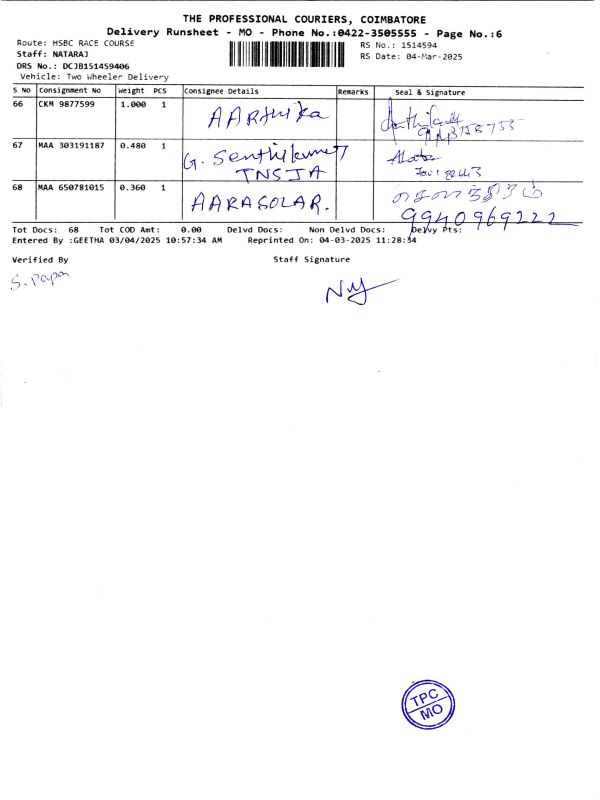 THE PROFESSIONAL COURIERS, COIMBATORE
Delivery Runsheet - MO - Phone No.:0422-3505555 - Page No.:6
Route: HSBC RACE COURSE
RS No.: 1514594
Staff: NATARAJ
RS Date: 04-Mar-2025
DRS No.: DCJB151459406
Vehicle: Two Wheeler Delivery
S No Consignment No Weight PCS Consignee Details Remarks Seal & Signature
66 CKM 9877599 1.000 1 AARthika
67 MAA 303191187 0.480 1 G. Senthilkumar
TNSJA
68 MAA 650781015 0.360 1 AARASOLAR.
9940969222
Tot Docs: 68 Tot COD Amt: 0.00 Delvd Docs: Non Delvd Docs: Delvy Pts:
Entered By :GEETHA 03/04/2025 10:57:34 AM Reprinted On: 04-03-2025 11:28:34
Verified By Staff Signature
S. Papa
TPC
MO